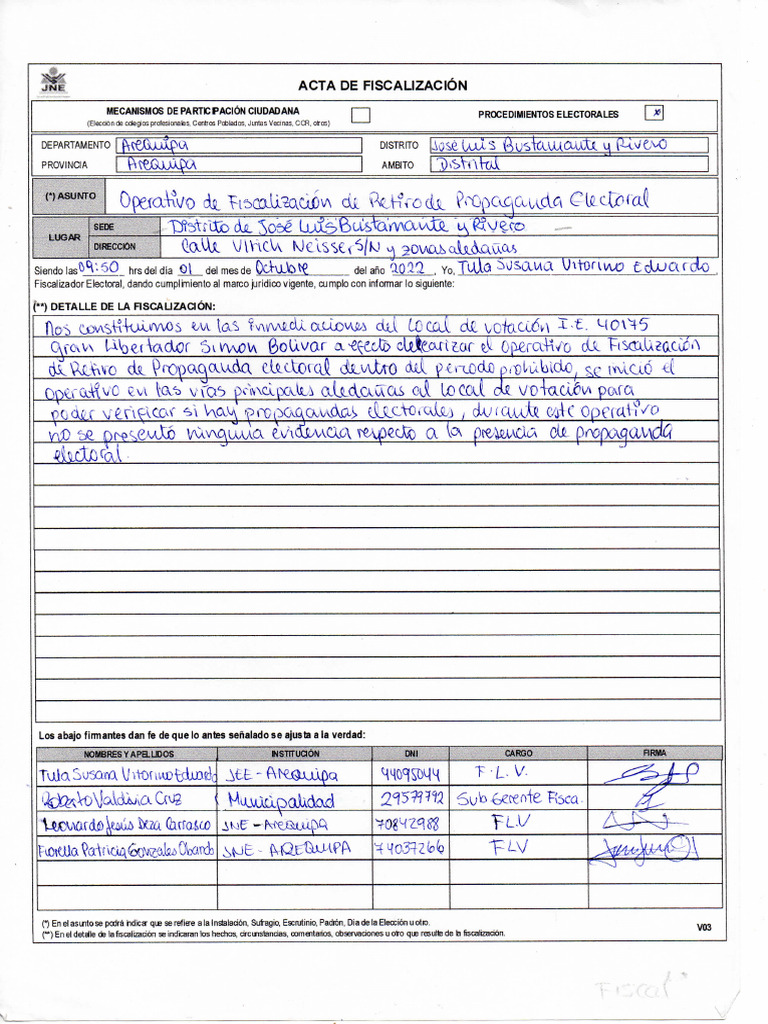 JNE
ACTA DE FISCALIZACIÓN
MECANISMOS DE PARTICIPACIÓN CIUDADANA
(Elección de colegios profesionales, Centros Poblados, Juntas Vecinas, CCR, otros)
PROCEDIMIENTOS ELECTORALES x
DEPARTAMENTO Arequipa DISTRITO José Luis Bustamante y Rivero
PROVINCIA Arequipa AMBITO Distrital
(*) ASUNTO Operativo de Fiscalización de Retiro de Propaganda Electoral
LUGAR
SEDE Distrito de José Luis Bustamante y Rivero
DIRECCIÓN Calle Vitrich Neisser S/N y zonas aledañas
Siendo las 09:50 hrs del día 01 del mes de Octubre del año 2022, Yo, Tula Susana Vitorino Eduardo
Fiscalizador Electoral, dando cumplimiento al marco jurídico vigente, cumplo con informar lo siguiente:
(**) DETALLE DE LA FISCALIZACIÓN:
Nos constituimos en las inmediaciones del Local de votación I.E. 40175
Gran Libertador Simon Bolivar a efecto de el operativo de Fiscalización
de Retiro de Propaganda electoral dentro del periodo prohibido, se inició el
operativo en las vías principales aledañas al local de votación para
poder verificar si hay propagandas electorales, durante este operativo
no se presentó ninguna evidencia respecto a la presencia de propaganda
electoral.
Los abajo firmantes dan fe de que lo antes señalado se ajusta a la verdad:
NOMBRES Y APELLIDOS INSTITUCIÓN DNI CARGO FIRMA
Tula Susana Vitorino Eduardo JEE - Arequipa 44095044 F.L.V.
Roberto Valdivia Cruz Municipalidad 29579792 Sub Gerente Fisca.
Leonardo Jesús Deza Carrasco JNE - Arequipa 70842988 FLV
Fiorella Patricia Gonzales Obando JNE - AREQUIPA 74037266 FLV
(*) En el asunto se podrá indicar que se refiere a la Instalación, Sufragio, Escrutinio, Padrón, Día de la Elección u otro.
(**) En el detalle de la fiscalización se indicaran los hechos, circunstancias, comentarios, observaciones u otro que resulte de la fiscalización.
V03
Fiscal